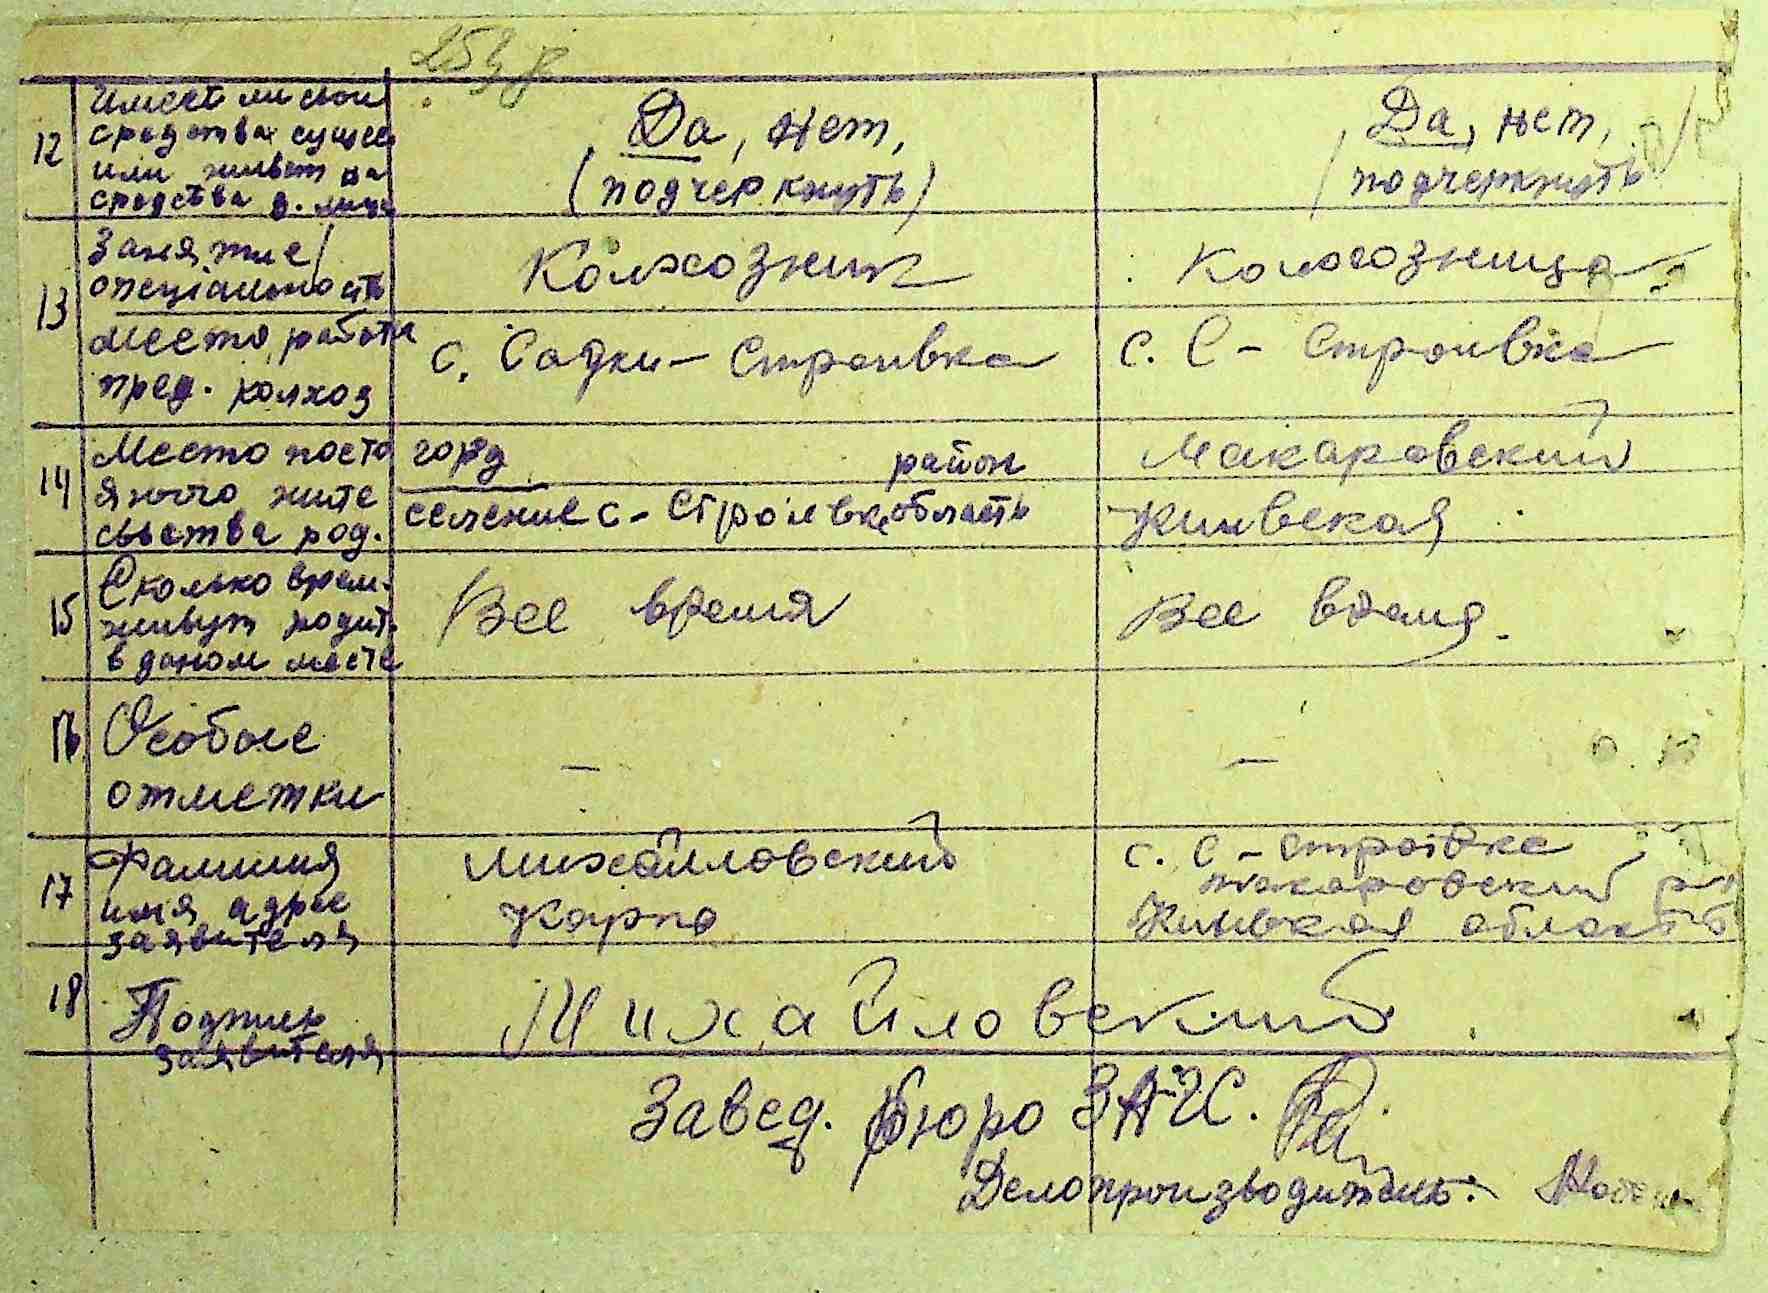 12 имеет ли свои
средства сущес
или живет на
средства д. лица
Да, нет,
(подчеркнуть)
Да, нет,
подчеркнуть
13 Занятие/
специальность
Колхозник
Колхозница
место работы
пред. колхоз
с. Садки-Строивка
с. С-Строивка
14 Место посто
янного жите
льства род.
город
район
Макаровский
селение с-Строивка область
Киевская
15 Сколько врем.
живут родит.
в даном месте
Все время
Все время.
16 Особые
отметки
–
–
17 Фамилия
имя, адрес
заявителя
Михайловский
Карпо
с. С-Строивка
Макаровский
Киевская область
18 Подпись
заявителя
Михайловский
Завед. бюро ЗАГС.
Делопроизводитель: